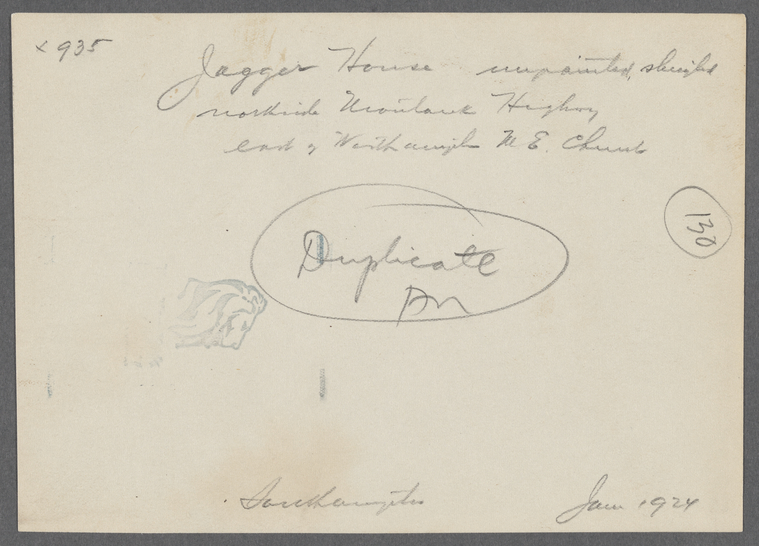 x 935
Jagger House unpainted, shingled
northside Montauk Highway
east of Westhampton M. E. Church
130
Duplicate
Southampton
Jan 1924